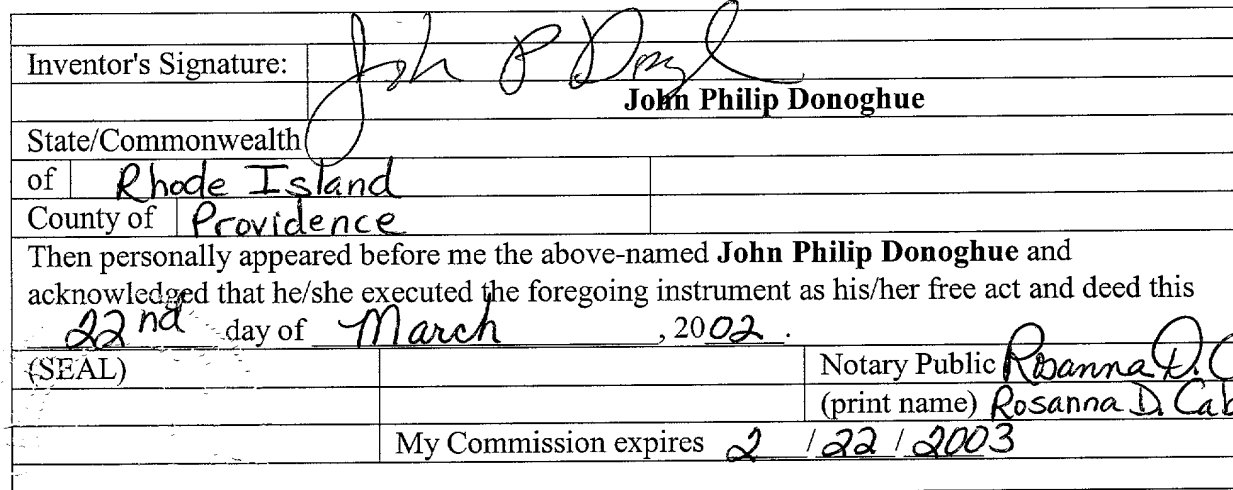 Inventor's Signature:
John Philip Donoghue
State/Commonwealth
of Rhode Island
County of Providence
Then personally appeared before me the above-named John Philip Donoghue and
acknowledged that he/she executed the foregoing instrument as his/her free act and deed this
22nd day of March, 2002.
(SEAL) Notary Public Rosanna D. C
(print name) Rosanna D. Cab
My Commission expires 2 / 22 / 2003